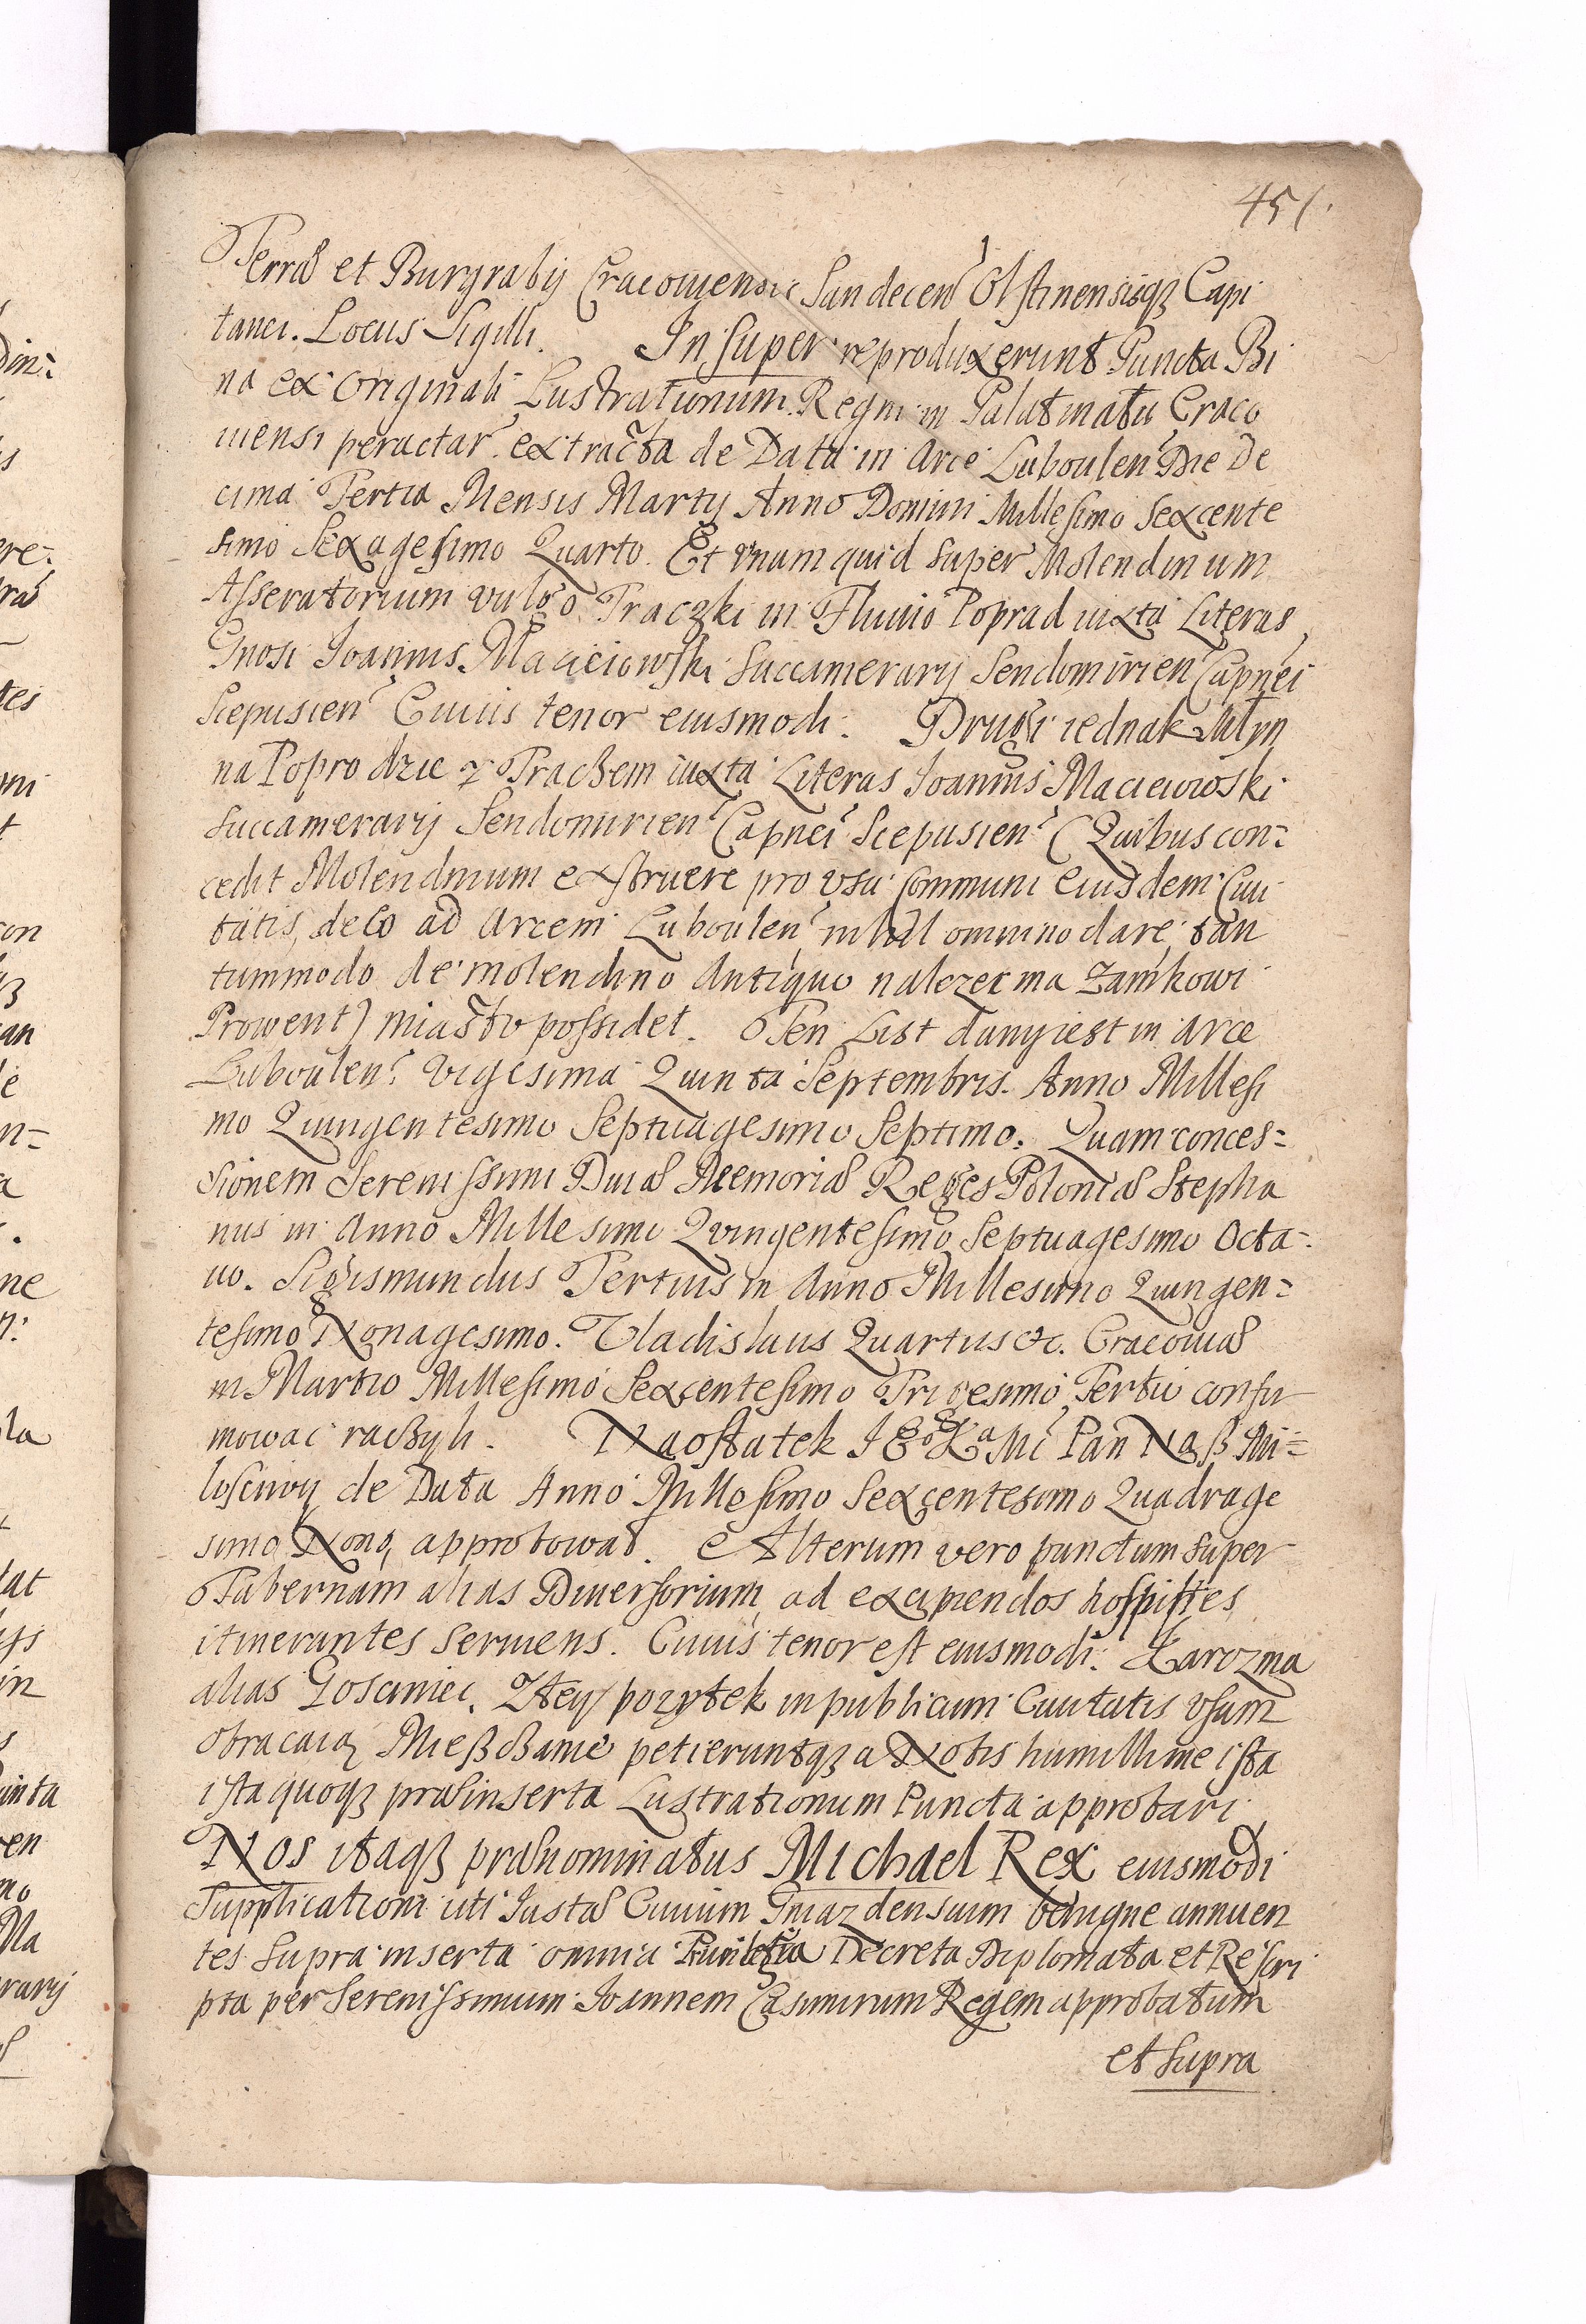 451.
Terræ et Burgrabij Cracouiensis Sandecen Olstinensisqz Capi
tanei. Locus Sigilli. Insuper reproduxerunt Puncta Bi
na ex Originali Lustrationum Regni in Palatinatu Craco
uiensi peractar. extracta de Data in Arce Luboulen Die De
cima Tertia Mensis Martij Anno Domini Millesimo Sexcente
simo Sexagesimo Quarto. Et vnum quid super Molendinum
Asseratorium vulgo Traczki in Fluuio Poprad iuxta Literas
Gnosi Joannis Macieiowski Succamerarij Sendomirien Capnei
Scepusien Cuiuis tenor eiusmodi. Drugi iednak Młyn
na Poprodzie z Traczem iuxta Literas Joannis Macieiowski
Succamerarij Sendomirien Capnei Scepusien (Quibus con=
cedit Molendinum exstruere pro vsu Communi Eiusdem Ciui
tatis, de Co ad Arcem Luboulen nihil omnino dare, tan
tummodo de molendino Antiquo nalezec ma Zamkowi
Prowent) miasto possidet. Ten List dany iest in Arce
Luboulen. Vigesima Quinta Septembris. Anno Millesi
mo Quingentesimo Septuagesimo Septimo. Quam conces=
sionem Serenissimi Diuæ Memoriæ Reges Poloniæ Stepha
nus in Anno Millesimo Quingentesimo Septuagesimo Octa=
uo. Sigismundus Tertius in Anno Millesimo Quingen=
tesimo Nonagesimo. Vladislaus Quartus &c. Cracouiæ
in Martio Millesimo Sexcentesimo Trigesimo Tertio confir
mowac raczyli. Naostatek J Eº Kª Mc Pan Nasz Mi=
losciwy de Data Anno Millesimo Sexcentesimo Quadrage
simo Nono, approbował. Alterum vero punctum super
Tabernam alias Diuersorium, ad excipiendos hospites
itinerantes seruiens. Cuius tenor est eiusmodi. Karczma
alias Gosciniec. Ztey pozytek in publicum Ciuitatis vsum
obracaią Mieszczanie petieruntqz a Nobis humillime ista
ista quoqz præinserta Lustrationum Puncta approbari.
Nos itaqz prænominatus Michael Rex eiusmodi
Supplicationi uti Justæ Ciuium Gniazdensium benigne annuen
tes supra inserta omnia Priuilegia Decreta Diplomata et Rescri
pta per Serenissimum Joannem Casimirum Regem approbatum
et supra